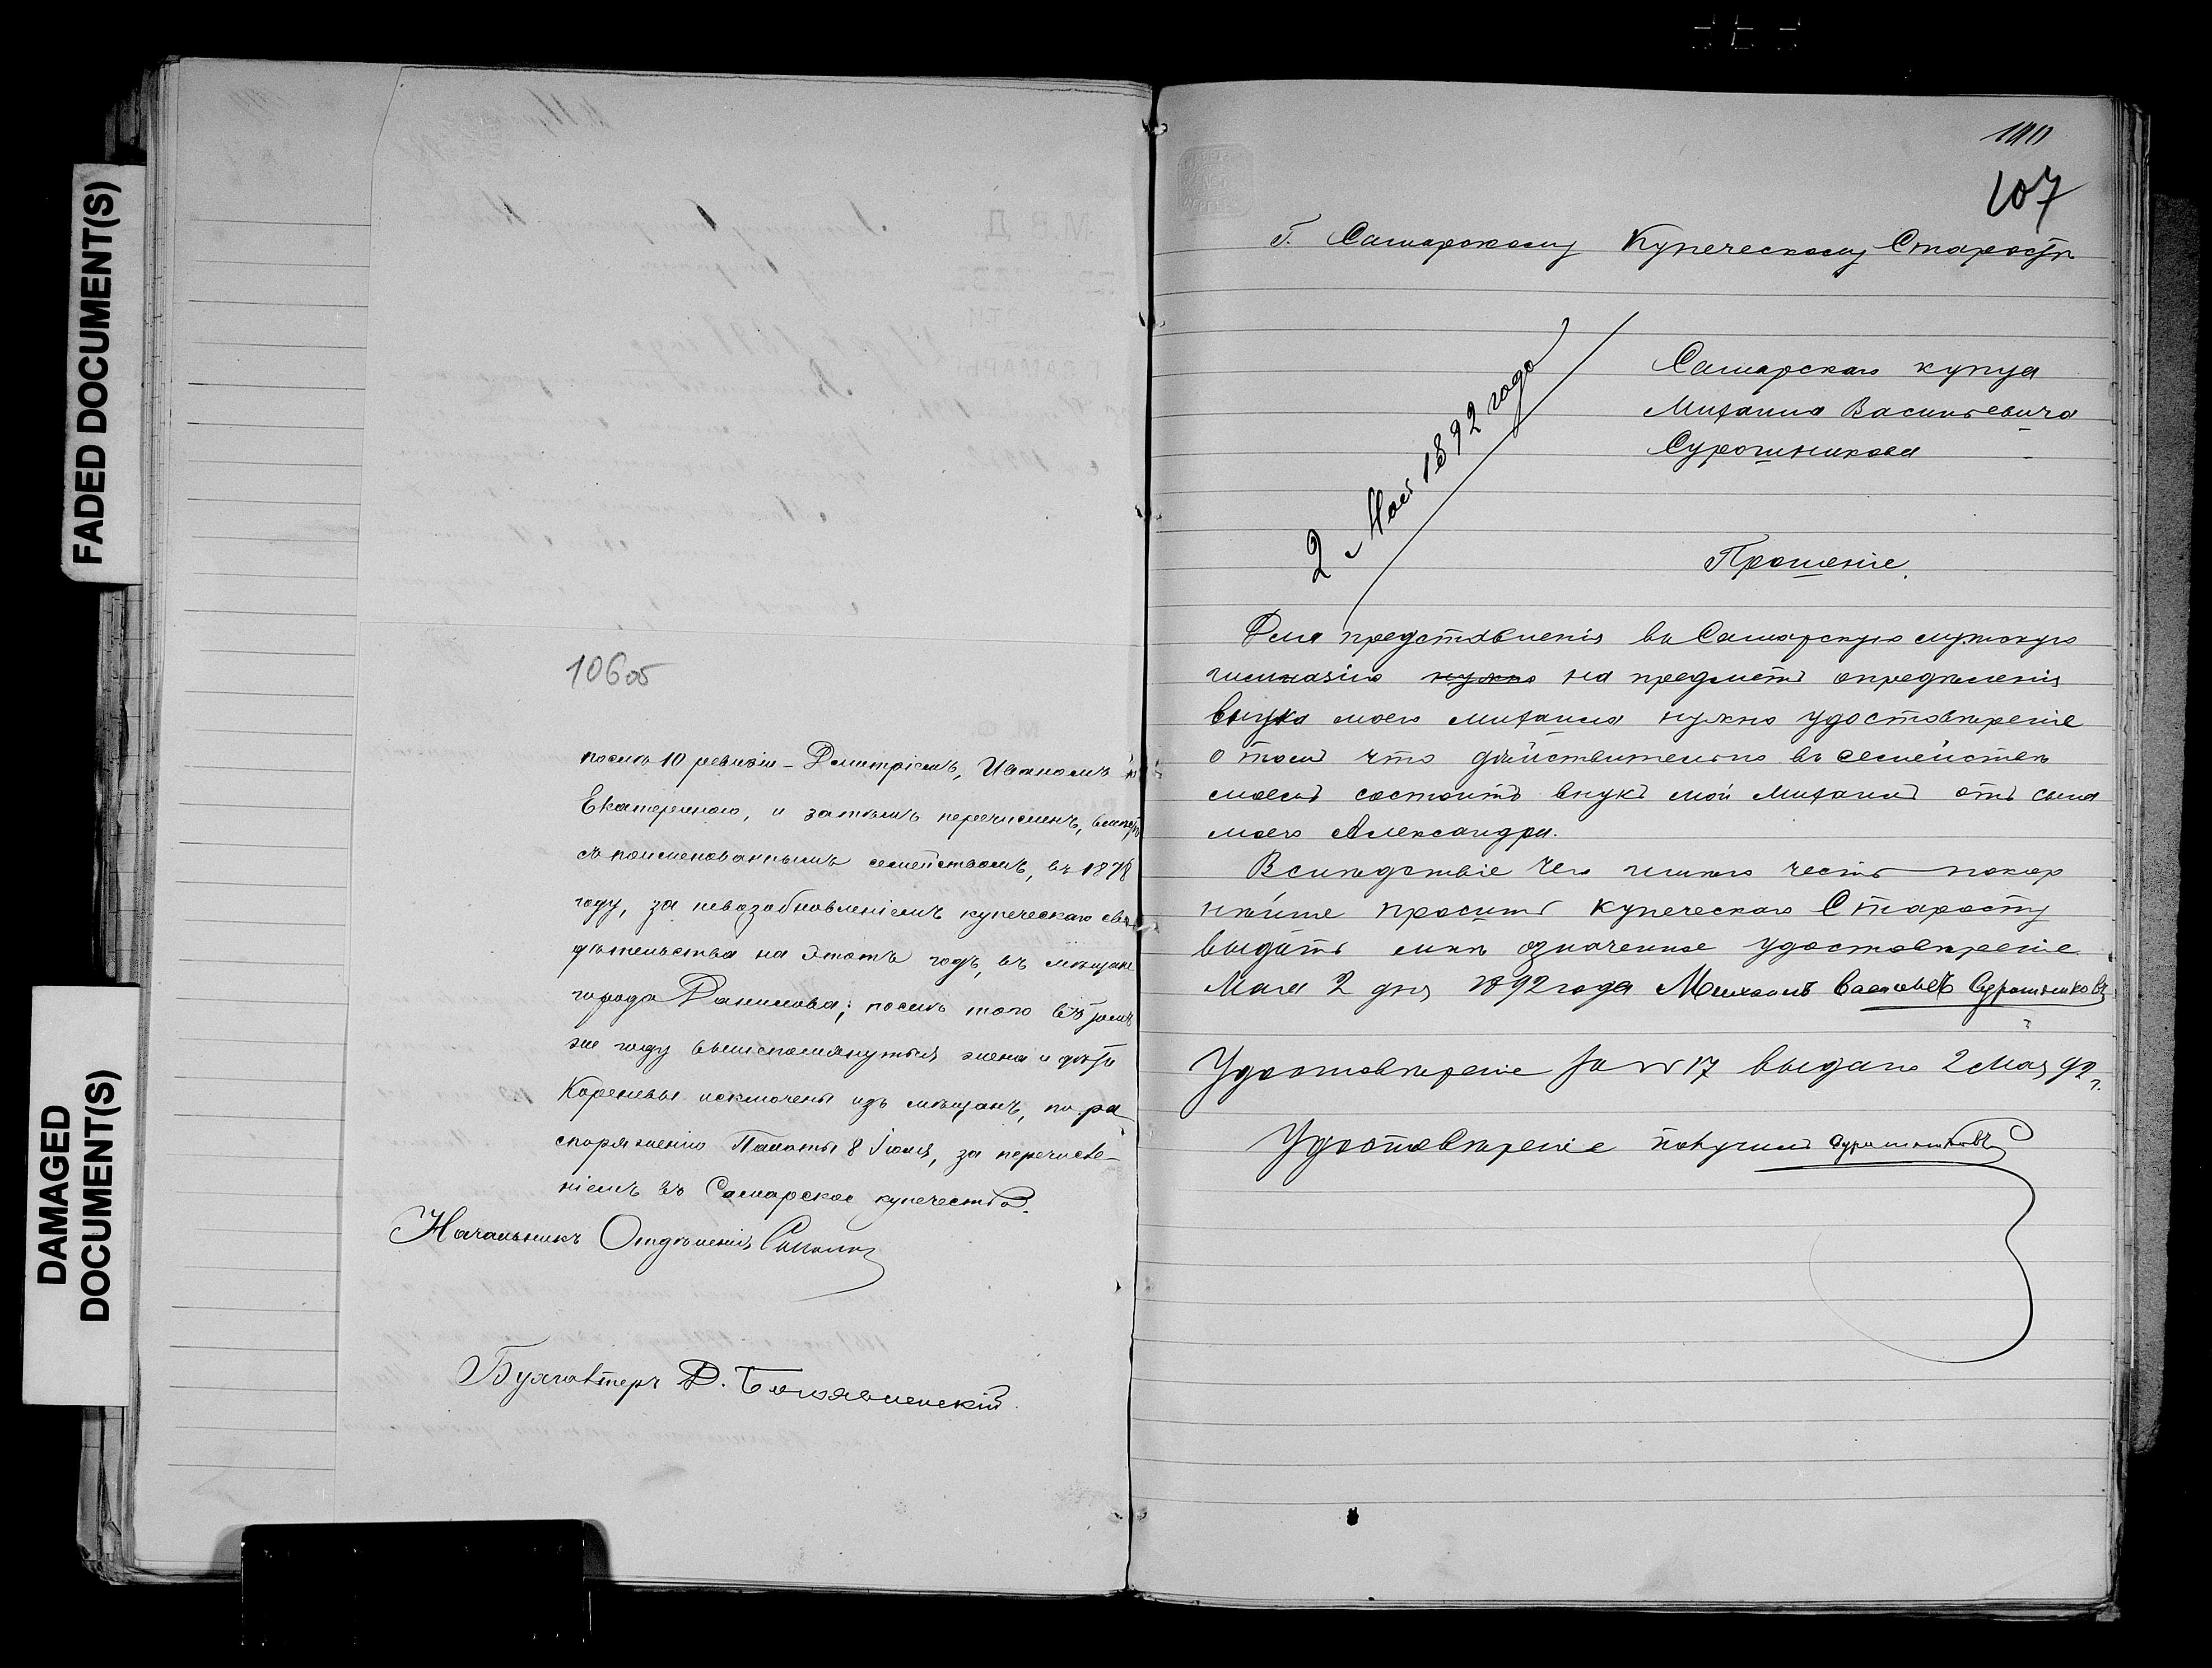 FADED DOCUMENT(S)
DAMAGED
DOCUMENT(S)
106 об
послѣ 10 ревизіи - Дмитріемъ, Иваномъ и
Екатериною, и затѣмъ перечисленъ, вмѣстѣ
съ поименованнымъ семействомъ, въ 1878
году, за невозобновленіемъ купеческаго сви-
дѣтельства на этотъ годъ, въ мѣщане
города Данилова; послѣ того въ томъ
же году вышепомянутыя жена и дѣти
Кореневы исключены изъ мѣщанъ, по ра-
споряженію Палаты 8 Іюля, за перечисле-
ніемъ въ Самарское купечество.
Начальникъ Отдѣленія
Бухгалтеръ
107
Г. Самарскому Купеческому Старостѣ
Самарскаго купца
Михаила Васильевича
Сурошникова
2 Мая 1892 года
Прошеніе.
Для представленія въ Самарскую мужскую
гимназію нужно на предметъ опредѣленія
внука моего Михаила нужно удостовѣреніе
о томъ что дѣйствительно въ семействѣ
моемъ состоитъ внукъ мой Михаилъ отъ сына
моего Александра.
Вслѣдствіе чего имѣю честь покор
нѣйше просить Купеческаго Старосту
выдать мнѣ означенное удостовѣреніе.
Мая 2 дня 1892 года Михаилъ Васильевъ Сурошниковъ
Удостовѣреніе за № 17 выдано 2 Мая 92 г.
Удостовѣреніе получилъ Сурошниковъ